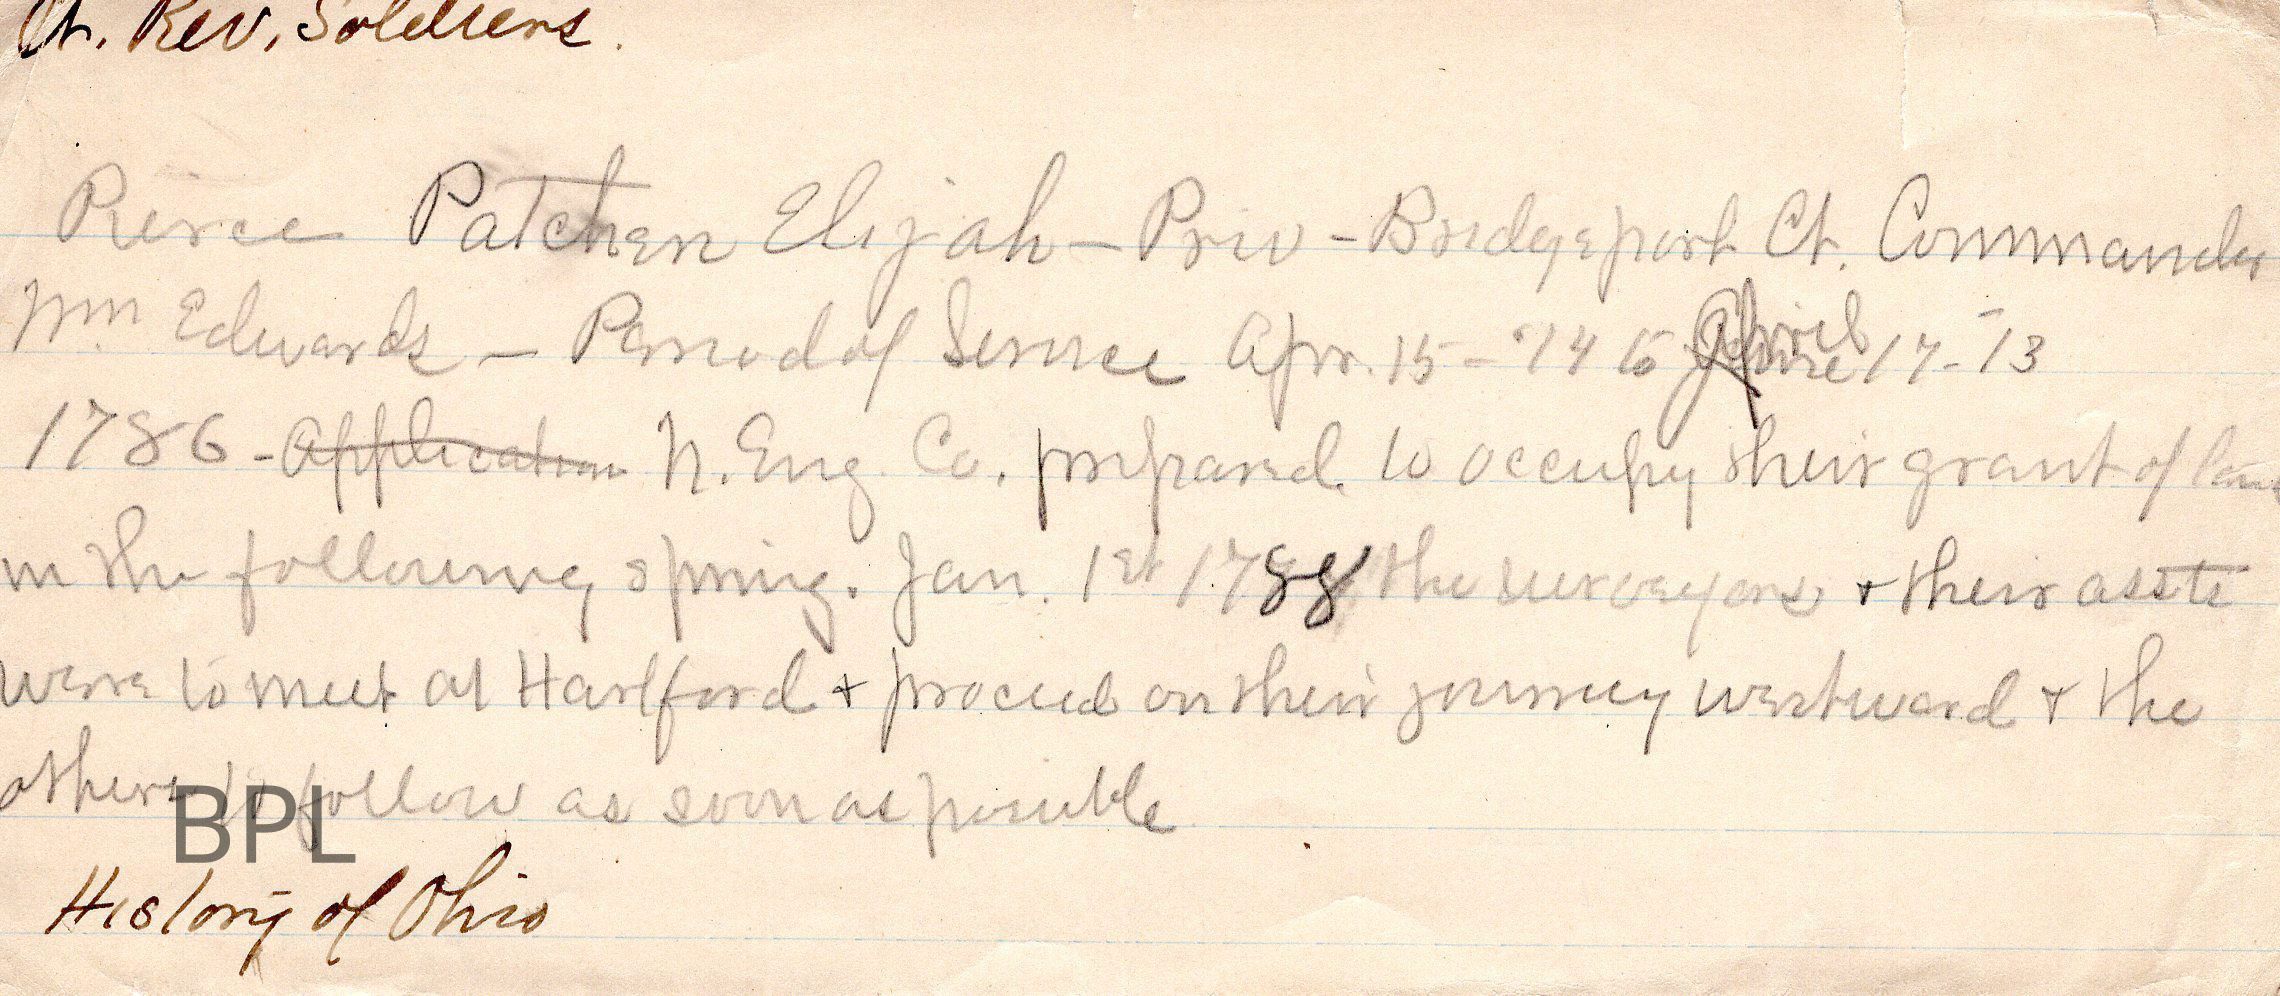 Ct. Rev. Soldiers.
Pierce Patchen Elijah - Priv - Bridgeport Ct. Commander
Wm Edwards - Period of Service Apr. 15 - to April 17 -
1786 - Application N. Eng. Co. prepared to occupy their grant of land
in the following spring. Jan. 1st 1788 the surveyors + their assts
were to meet at Hartford + proceed on their journey westward + the
others to follow as soon as possible
BPL
History of Ohio